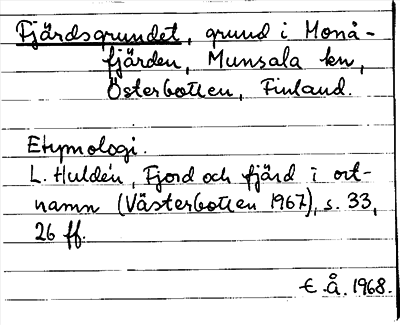 Fjärdsgrundet, grund i Monå-
fjärden, Munsala kn,
Österbotten, Finland.
Etymologi.
L. Huldén, Fjord och fjärd i ort-
namn (Västerbotten 1967), s. 33,
26 ff.
E.Å. 1968.